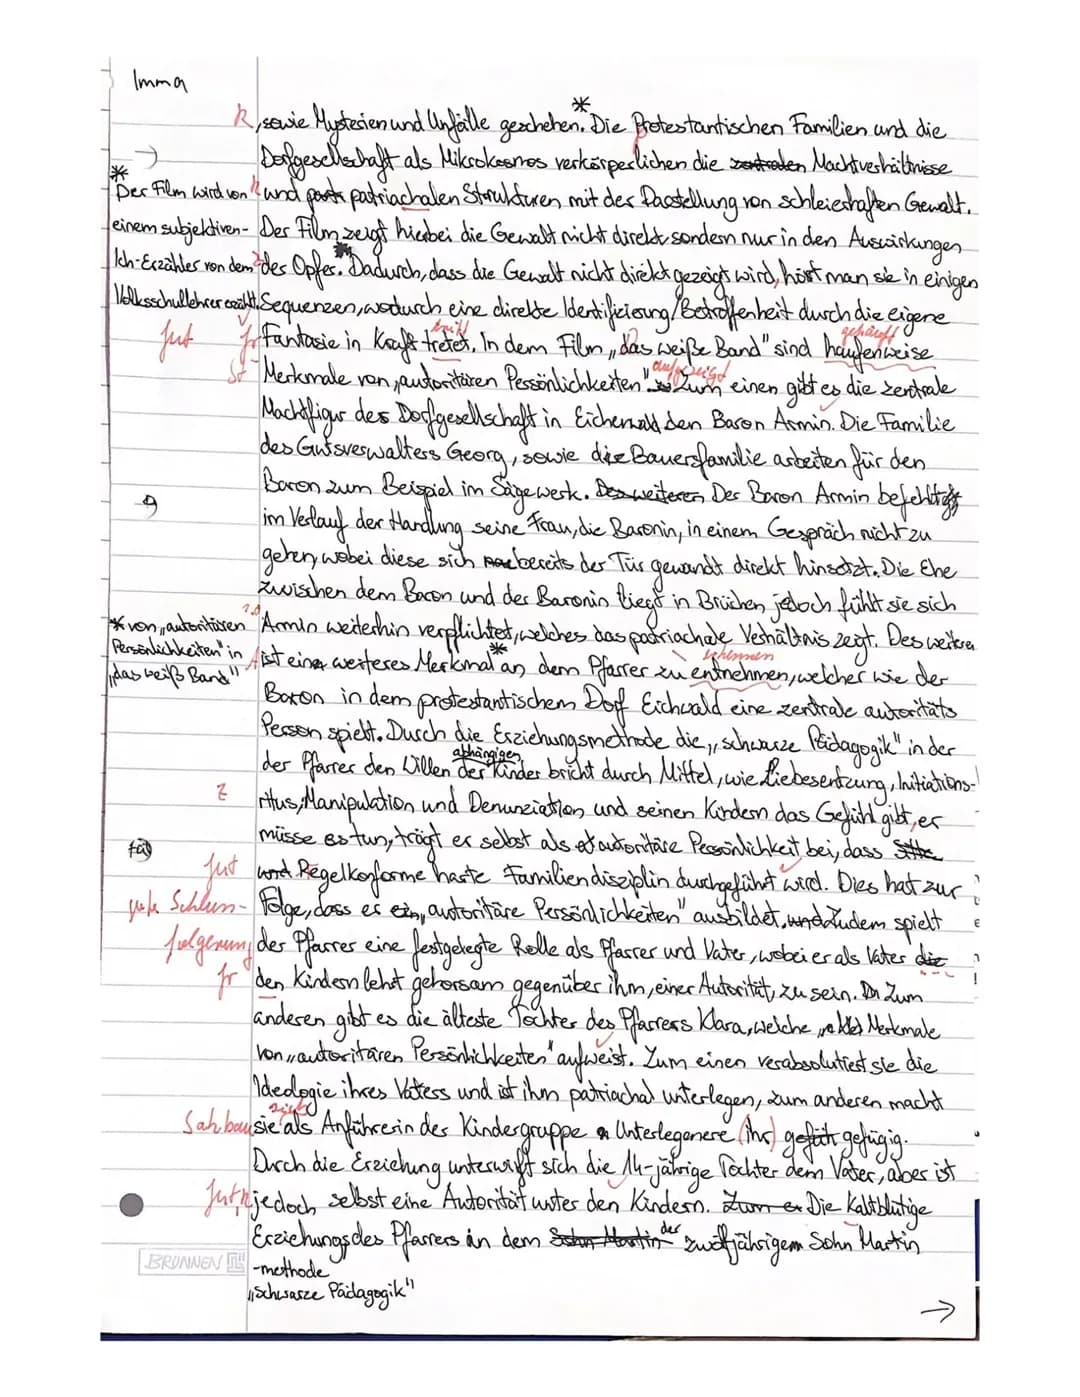 Imma
R , sowie Mysterien und Unfälle geschehen.* Die Protestantischen Familien und die
→ Dorfgesellschaft als Mikrokosmos verkörperlichen die zentralen Machtverhältnisse
* Der Film wird von einem subjektiven- Ich-Erzähler von dem Volksschullehrer erzählt.
R und patriachalen Strukturen mit der Darstellung von schleierhaften Gewalt.
Der Film zeigt hierbei die Gewalt nicht direkt sondern nur in den Auswirkungen
Z der Opfer.* Dadurch, dass die Gewalt nicht direkt gezeigt wird, hört man sie in einigen
Sequenzen, wodurch eine direkte Identifizierung/Betroffenheit durch die eigene
gut
Gr Fantasie in Kraft tretet. In dem Film „das weiße Band" sind haufenweise
tritt
gehäuft
St Merkmale von „autoritären Persönlichkeiten". Zum einen gibt es die zentrale
aufgezeigt
Machtfigur des Dorfgesellschaft in Eichenwald den Baron Armin. Die Familie
des Gutsverwalters Georg, sowie die Bauersfamilie arbeiten für den
Baron zum Beispiel im Sägewerk. Des weiteren Der Baron Armin befehlt
im Verlauf der Handlung seine Frau, die Baronin, in einem Gespräch nicht zu
gehen, wobei diese sich bereits der Tür gewandt direkt hinsetzt. Die Ehe
zwischen dem Baron und der Baronin liegt in Brüchen jedoch fühlt sie sich
Armin weiterhin verpflichtet, welches das patriachale Verhältnis zeigt. Des weiteren
* von „autoritären Persönlichkeiten" in „das weiß Band"
A ist einer weiteres Merkmal* an dem Pfarrer zu entnehmen, welcher wie der
erkennen
Baron in dem protestantischem Dorf Eichwald eine zentrale autoritäts
Person spielt. Durch die Erziehungsmethode die „schwarze Pädagogik" in der
der Pfarrer den Willen der Kinder bricht durch Mittel, wie Liebesentzung, Initiations-
abhängigen
Z ritus, Manipulation und Denunziation und seinen Kindern das Gefühl gibt, er
müsse es tun, trägt er selbst als autoritäre Persönlichkeit bei, dass
gut wird Regelkonforme harte Familiendisziplin durchgeführt wird. Dies hat zur
gute Schluss-
Folge, dass er ein „autoritäre Persönlichkeiten" ausbildet, und Zudem spielt
folgerung
der Pfarrer eine festgelegte Rolle als Pfarrer und Vater, wobei er als Vater die
Gr den Kindern lehrt gehorsam gegenüber ihm, einer Autorität, zu sein. Zum
anderen gibt es die älteste Tochter des Pfarrers Klara, welche Merkmale
von „autoritären Persönlichkeiten" aufweist. Zum einen verabsolutiert sie die
Ideologie ihres Vaters und ist ihm patriachal unterlegen, zum anderen macht
Satzbau sie als Anführerin der Kindergruppe Unterlegenere (ihr) gefügig.
Durch die Erziehung unterwirft sich die 14-jährige Tochter dem Vater, aber ist
gut, R jedoch selbst eine Autorität unter den Kindern. Die Kaltblütige
Erziehungs des Pfarrers an dem Sohn Martin der zwölfjährigem Sohn Martin
BRUNNEN
-methode
„schwarze Pädagogik"
→